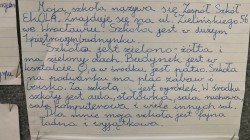 Moja szkoła nazywa się Zespół Szkół
EKOLA. Znajduje się na ul. Zielińskiego 56
we Wrocławiu. Szkoła jest w dużym
trzypiętrowym budynku.
Szkoła jest zielono-żółta i
ma dwa płace. Budynek jest w
kształcie O, a w środku jest patio. Szkoła
na podwórku ma plac zabaw i
boisko. Za szkołą jest ogródek. W środku
szkoły jest aula, stołówka, sala ruchowa
sala komputerowa i wiele innych sal.
Dla mnie moja szkoła jest fajna
ładna i wyjątkowa.